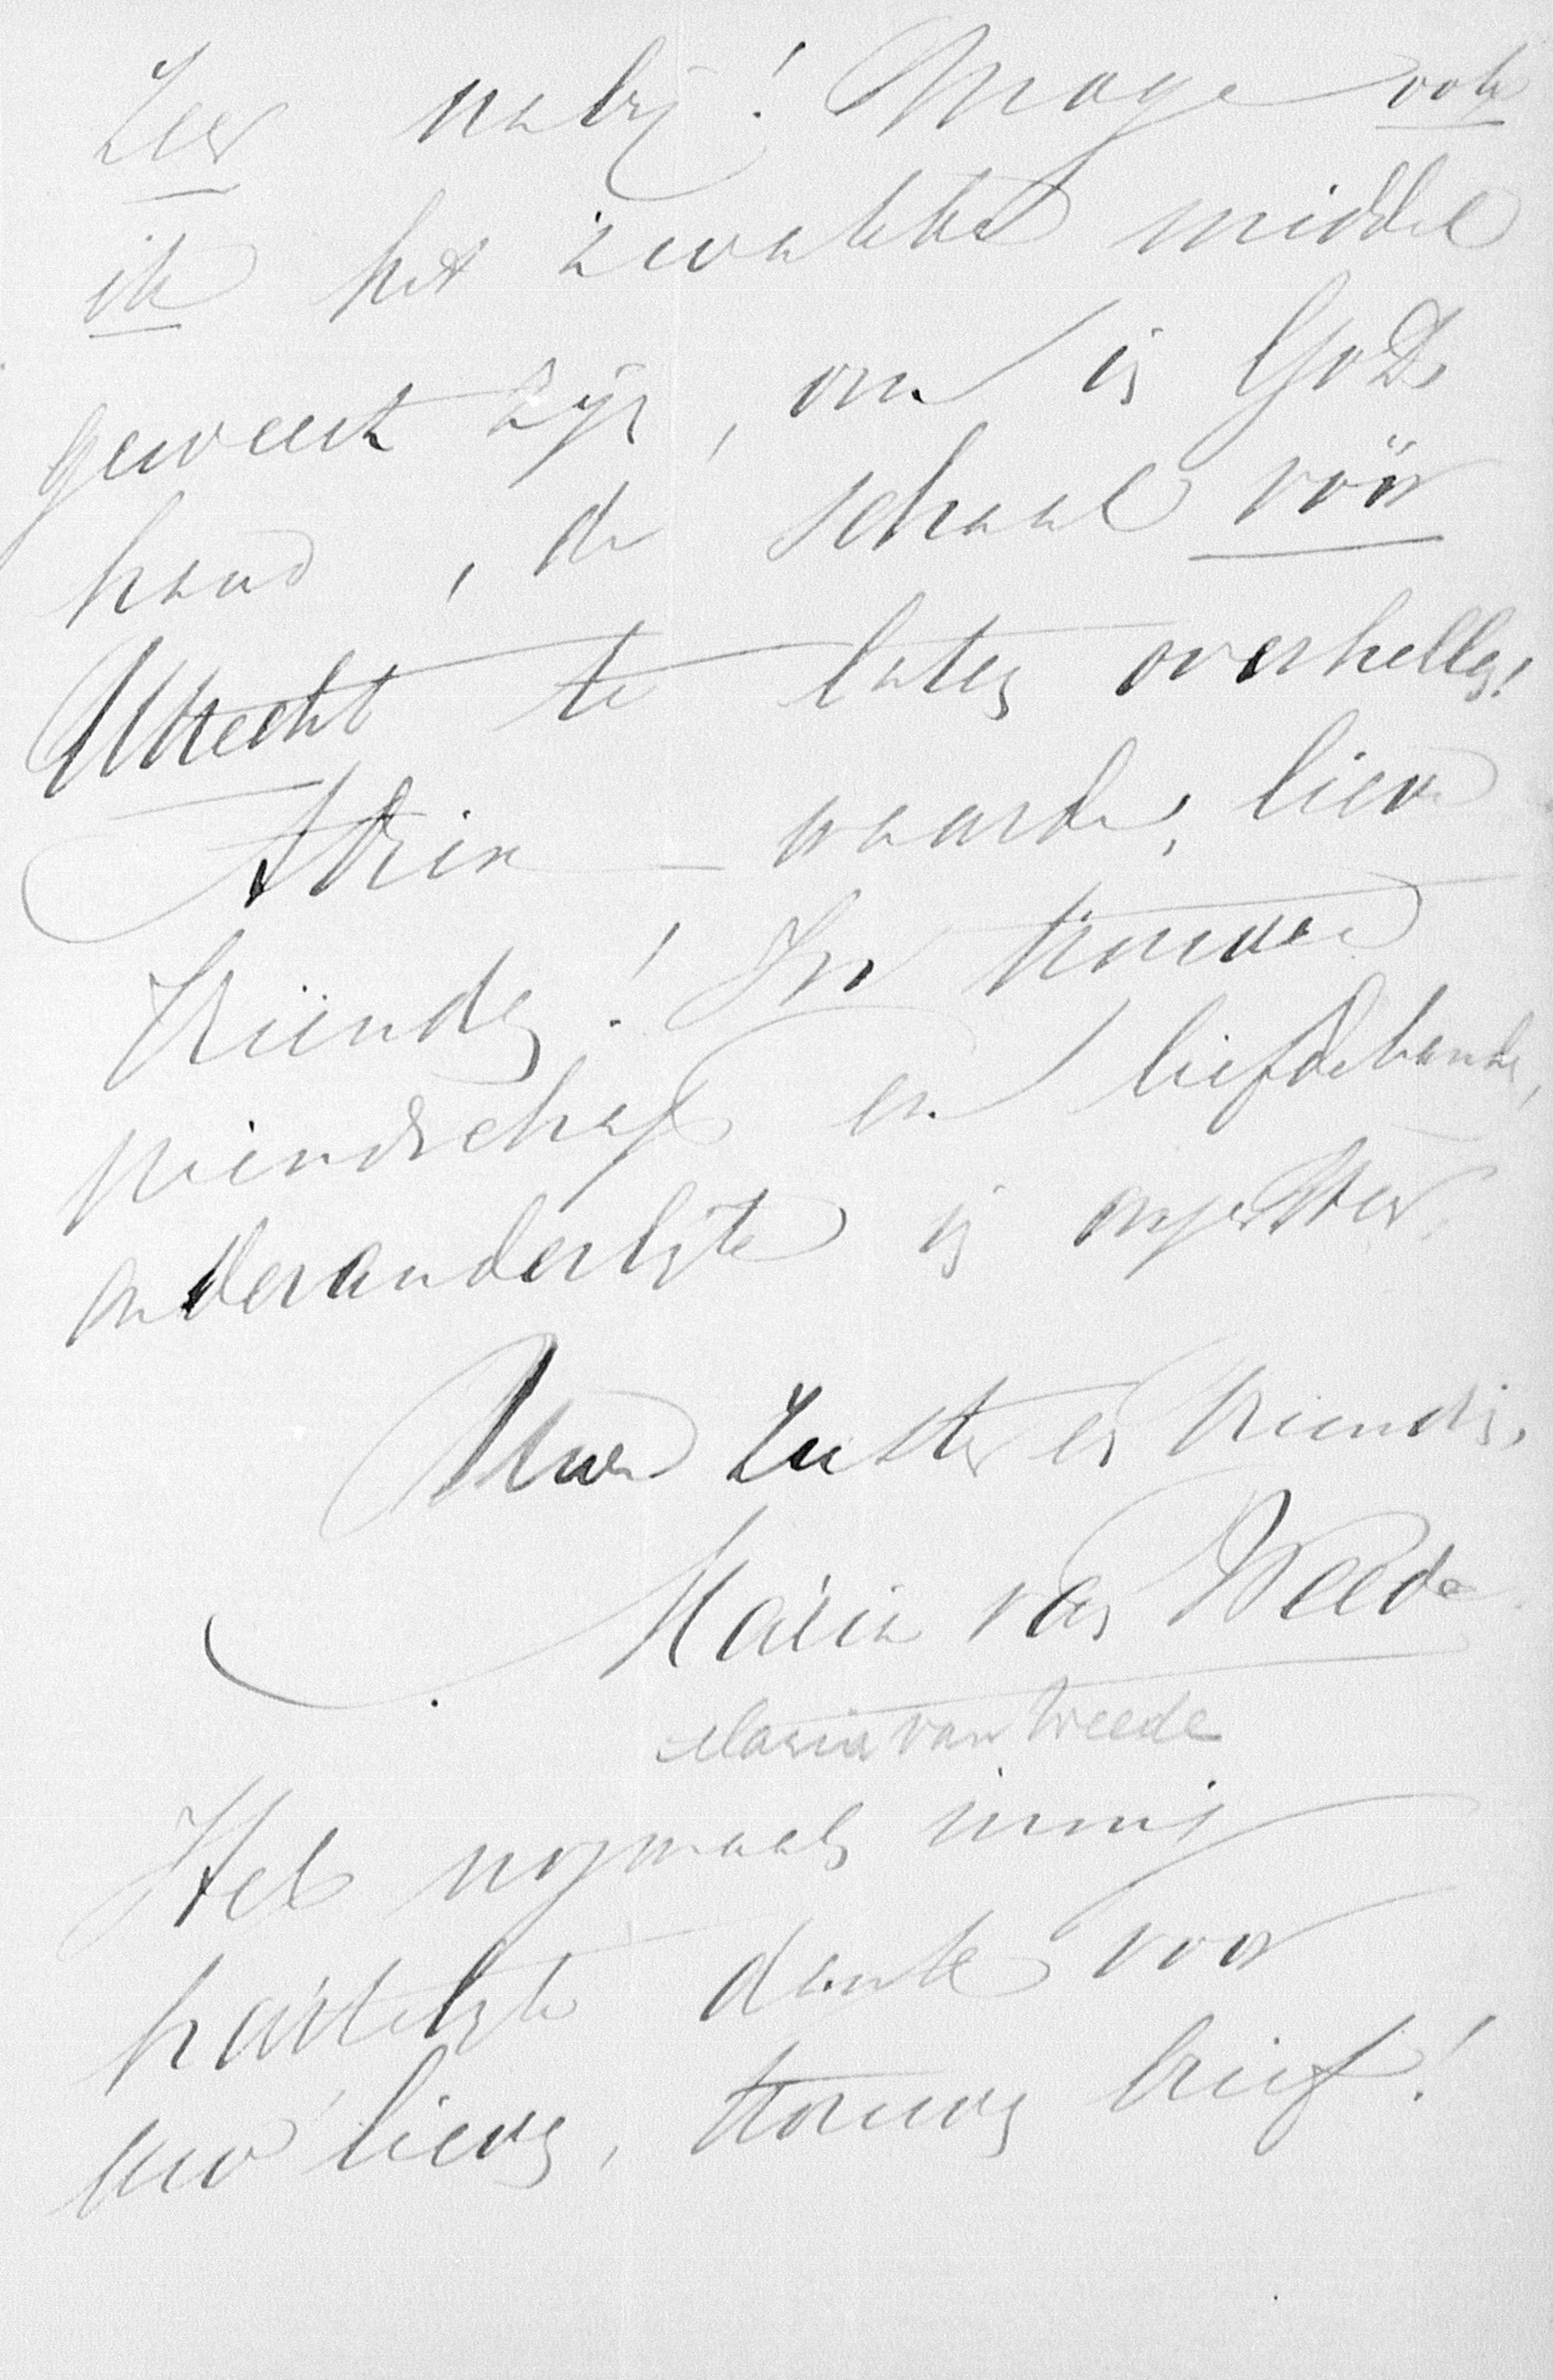 Zeer nabij! Moge ook
ik het zwakke middel
geweest zijn, om in Gods
hand, de schaal vóór
Utrecht te laten overhellen!
Adieu – waarde, lieve
Vrienden! In trouwe
vriendschap en liefdebande,
onveranderlijke
Uwe Zuster en Vriendin,
Maria van Weede
Maria van Weede
Heb nogmaals innig
hartelijk dank voor
uw lieven, trouwen brief!